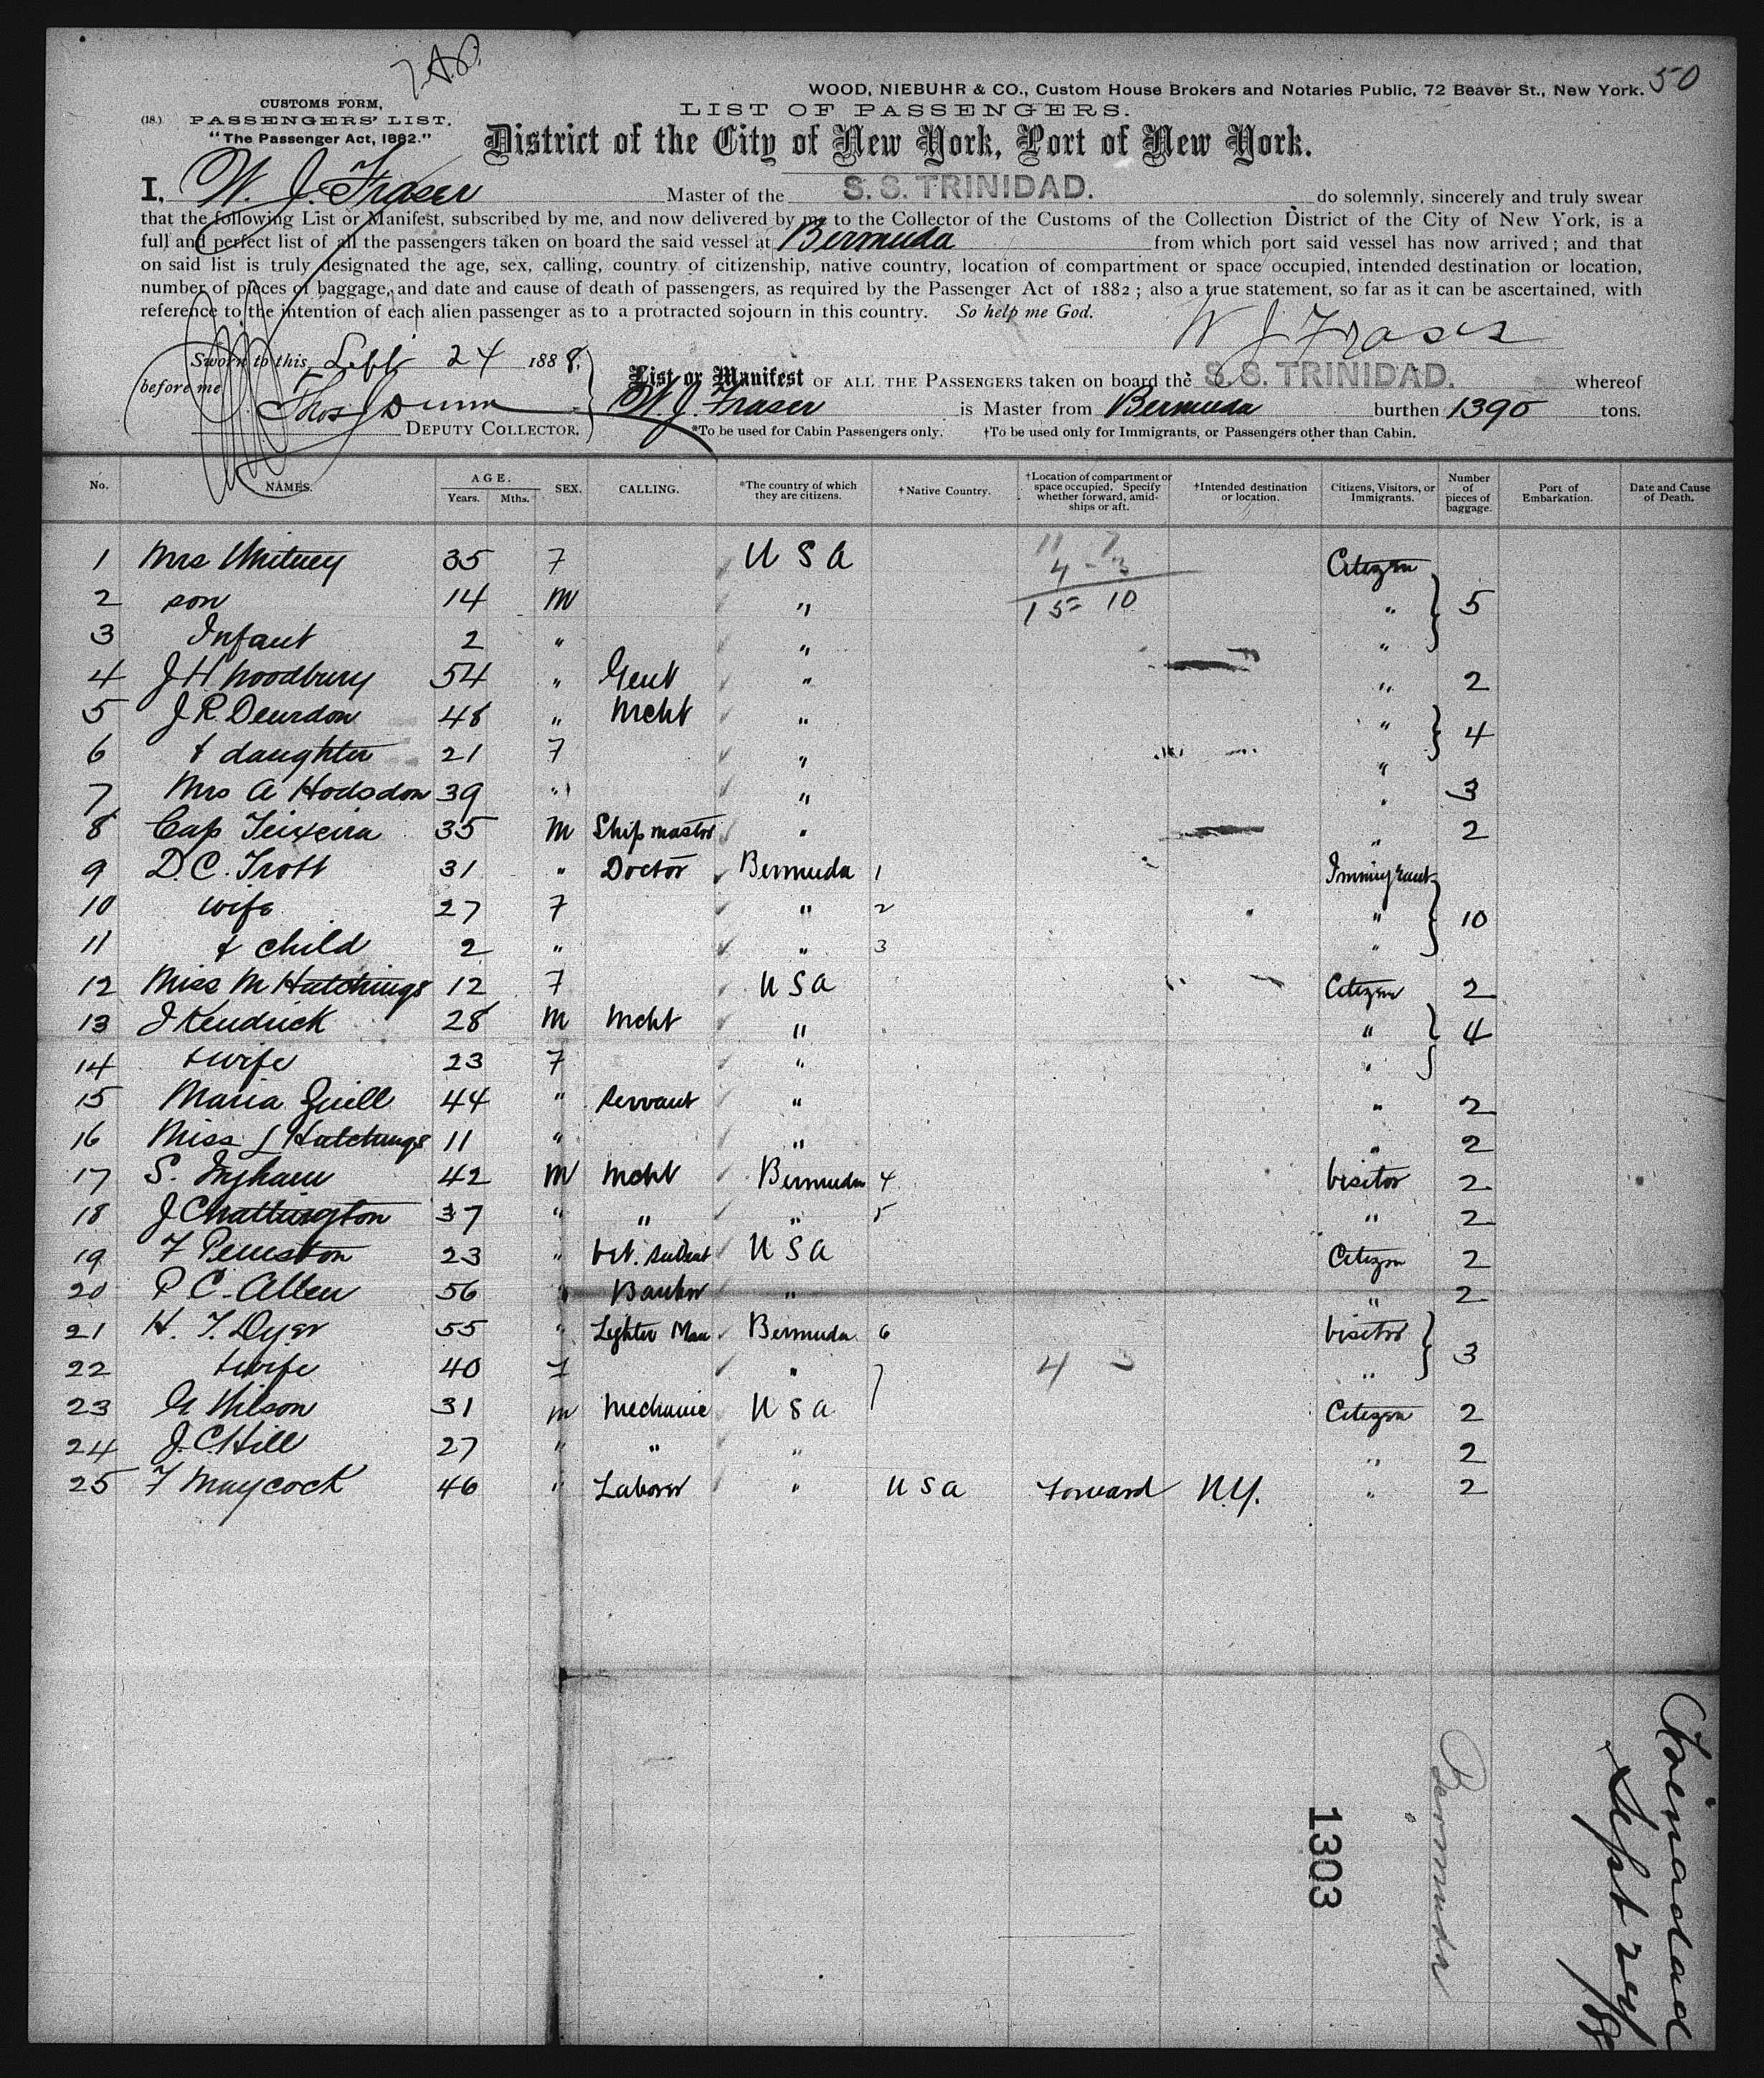 50
WOOD, NIEBUHR & CO., Custom House Brokers and Notaries Public, 72 Beaver St., New York.
CUSTOMS FORM,
(18.) PASSENGERS' LIST.
"The Passenger Act, 1882."
LIST OF PASSENGERS.
District of the City of New York, Port of New York.
I, W. J. Fraser Master of the S. S. TRINIDAD. do solemnly, sincerely and truly swear
that the following List or Manifest, subscribed by me, and now delivered by me to the Collector of the Customs of the Collection District of the City of New York, is a
full and perfect list of all the passengers taken on board the said vessel at Bermuda from which port said vessel has now arrived; and that
on said list is truly designated the age, sex, calling, country of citizenship, native country, location of compartment or space occupied, intended destination or location,
number of pieces of baggage, and date and cause of death of passengers, as required by the Passenger Act of 1882; also a true statement, so far as it can be ascertained, with
reference to the intention of each alien passenger as to a protracted sojourn in this country. So help me God.
W J Fraser
Sworn to this Sept 24 1888,
before me
Thos Dunn
DEPUTY COLLECTOR.
List or Manifest OF ALL THE PASSENGERS taken on board the S. S. TRINIDAD. whereof
W. J. Fraser is Master from Bermuda burthen 1390 tons.
*To be used for Cabin Passengers only. †To be used only for Immigrants, or Passengers other than Cabin.
No. NAMES. AGE. Years. Mths. SEX. CALLING. *The country of which they are citizens. †Native Country. †Location of compartment or space occupied. Specify whether forward, amidships or aft. †Intended destination or location. Citizens, Visitors, or Immigrants. Number of pieces of baggage. Port of Embarkation. Date and Cause of Death.
11 7
4 - 3
15 = 10
1 Mrs Whitney 35 F U S A Citizen
2 son 14 M " " 5
3 Infant 2 " " "
4 J H Woodbury 54 " Gent " " 2
5 J. R. Deurdon 48 " Mcht " " 4
6 & daughter 21 F " "
7 Mrs A Hodsdon 39 " " " 3
8 Cap Teixeira 35 M Ship master " " 2
9 D. C. Trott 31 " Doctor Bermuda 1 Immigrant
10 wife 27 F " 2 " 10
11 & child 2 " " 3 "
12 Miss M Hutchings 12 F U S A Citizen 2
13 J Kendrick 28 M Mcht " " 4
14 & wife 23 F " "
15 Maria Quill 44 " Servant " " 2
16 Miss L Hutchings 11 " " " 2
17 S. Ingham 42 M Mcht Bermuda 4 Visitor 2
18 J Chattington 37 " " " 5 " 2
19 F Peniston 23 " Vet. Student U S A Citizen 2
20 P C. Allen 56 " Banker " " 2
21 H. T. Dyer 55 " Lighter Man Bermuda 6 Visitor 3
22 & wife 40 F " 7 4 "
23 G Wilson 31 M Mechanic U S A Citizen 2
24 J. C. Hill 27 " " " " 2
25 F Maycock 46 " Laborer " U S A Forward N.Y. " 2
1303
Bermuda
Trinidad
Sept 24/88